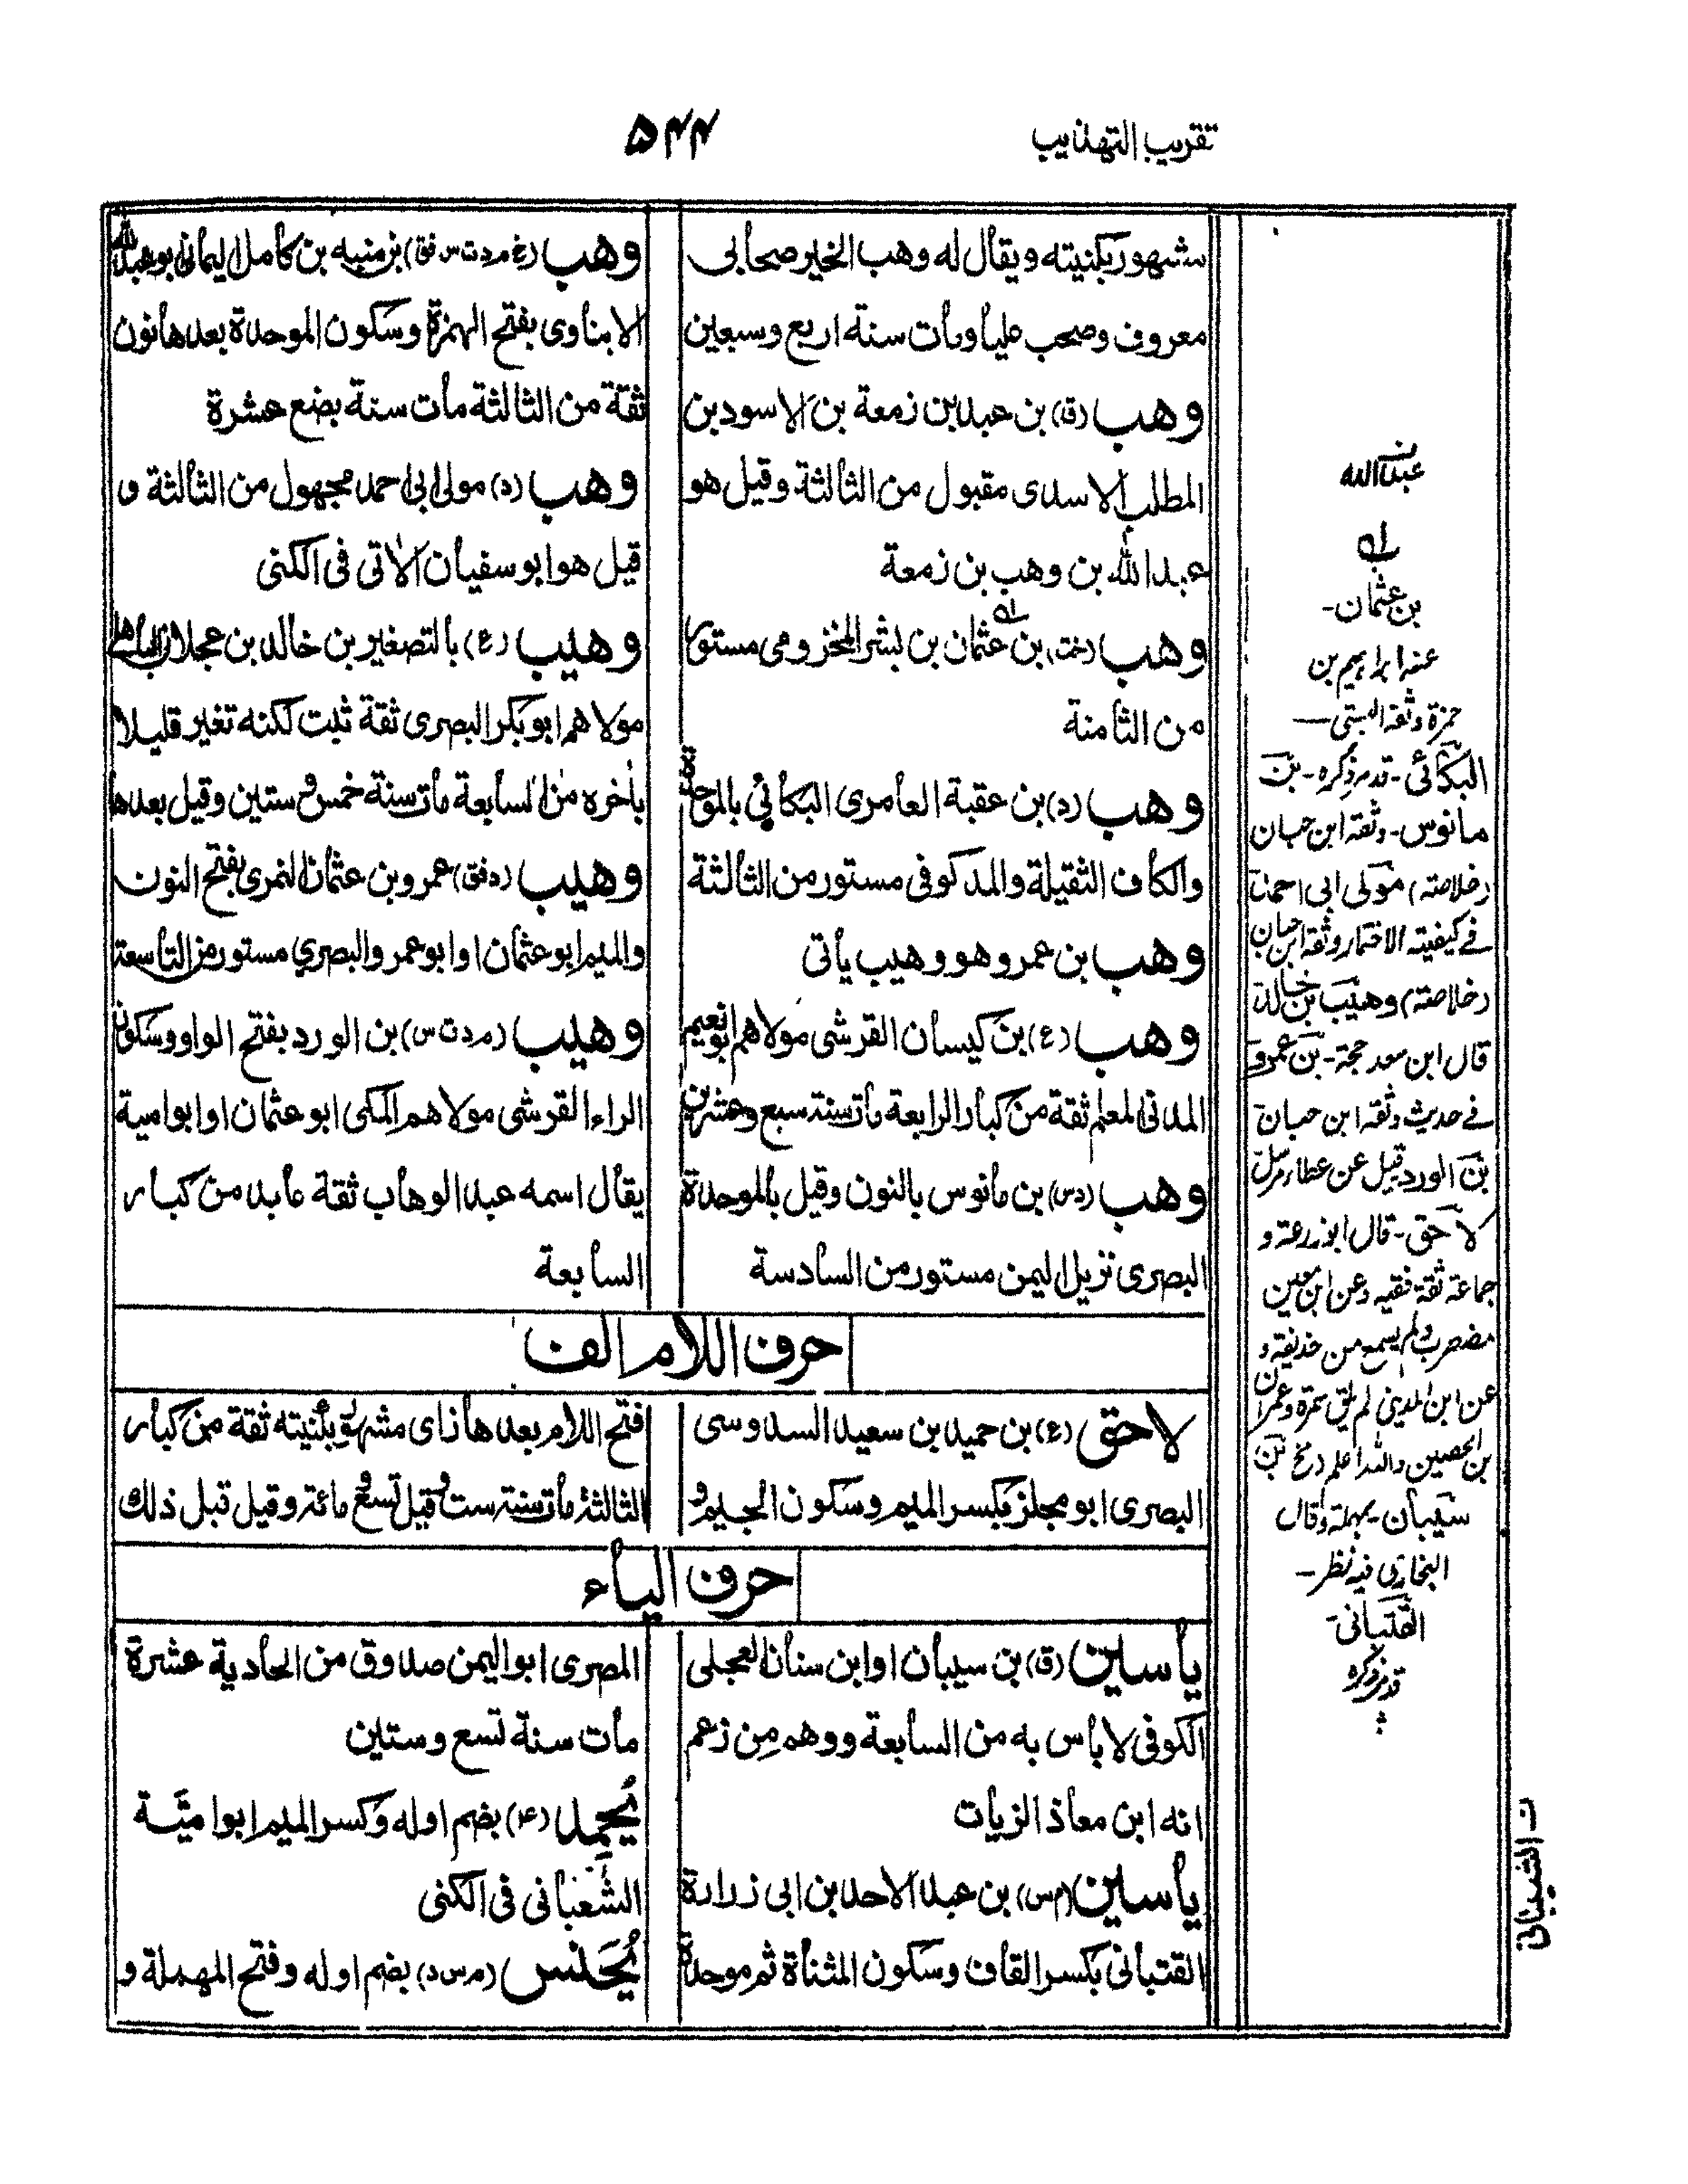 تقريب التهذيب
۵۴۴
مشهور بكنيته ويقال له وهب الخير صحابى
معروف وصحب عليا ومات سنة اربع وسبعين
وهب (ق) بن عبد بن زمعة بن الاسود بن
المطلب الاسدى مقبول من الثالثة وقيل هو
عبد الله بن وهب بن زمعة
وهب (خت) بن ابى عثمان بن بشر المخزومى مستور
من الثامنة
وهب (د) بن عقبة العامرى البكائي بالموحدة
والكاف الثقيلة والمد كوفى مستور من الثالثة
وهب بن عمرو هو وهيب يأتى
وهب (ع) بن كيسان القرشى مولاهم ابو نعيم
المدنى المعلم ثقة من كبار الرابعة مات سنة سبع وعشرين
وهب (دس) بن مانوس بالنون وقيل بالموحدة
البصرى نزيل اليمن مستور من السادسة
وهب (خ م د ت س فق) بن منبه بن كامل اليمانى ابو عبد الله
الابناوى بفتح الهمزة وسكون الموحدة بعدها نون
ثقة من الثالثة مات سنة بضع عشرة
وهب (د) مولى ابى احمد مجهول من الثالثة و
قيل هو ابو سفيان الآتى فى الكنى
وهيب (ع) بالتصغير بن خالد بن عجلان الباهلى
مولاهم ابو بكر البصرى ثقة ثبت لكنه تغير قليلا
بأخره من السابعة مات سنة خمس وستين وقيل بعدها
وهيب (د فق) عمرو بن عثمان النمرى بفتح النون
والميم ابو عثمان او ابو عمرو البصري مستور من التاسعة
وهيب (م د ت س) بن الورد بفتح الواو وسكون
الراء القرشى مولاهم المكى ابو عثمان او ابو امية
يقال اسمه عبد الوهاب ثقة عابد من كبار
السابعة
حرف اللام الف
لاحق (ع) بن حميد بن سعيد السدوسى
البصرى ابو مجلز بكسر الميم وسكون الجيم و
فتح اللام بعدها زاى مشهور بكنيته ثقة من كبار
الثالثة مات سنة ست وقيل تسع ومائة وقيل قبل ذلك
حرف الياء
ياسين (ق) بن سيبان او ابن سنان العجلى
الكوفى لا بأس به من السابعة ووهم من زعم
انه ابن معاذ الزيات
ياسين (م س) بن عبد الاحد بن ابى زرارة
القتبانى بكسر القاف وسكون المثناة ثم موحدة
المصرى ابو اليمن صدوق من الحادية عشرة
مات سنة تسع وستين
يُحمِد (۴) بضم اوله وكسر الميم ابو اميَّة
الشَّعبانى فى الكنى
يُحَنّس (م س د) بضم اوله وفتح المهملة و
عبد الله
ابى
بن عثمان-
عنه ابراہيم بن
حمزة وثقه البستى—
البكائى-قد مر ذكره-بن
مانوس-وثقه ابن حبان
(خلاصته) مولى ابى احمد
فى كيفيته الاختمار وثقه ابن حبان
(خلاصته) وهيب بن خالد
قال ابن سعد حجة-بن عمرو
فى حديث وثقه ابن حبان
بن الورد قيل عن عطاء مرسل
لاحق-قال ابو زرعة و
جماعة ثقة فقيه وعن ابن معين
مضطرب ولم يسمع من حذيفة و
عن ابن المدينى لم يلق سمرة وعمران
بن الحصين والله اعلم بن
سيبان-بمهملة وقال
البخارى فيه نظر-
القتبانى
قد مر ذكره
ت الشيبانى